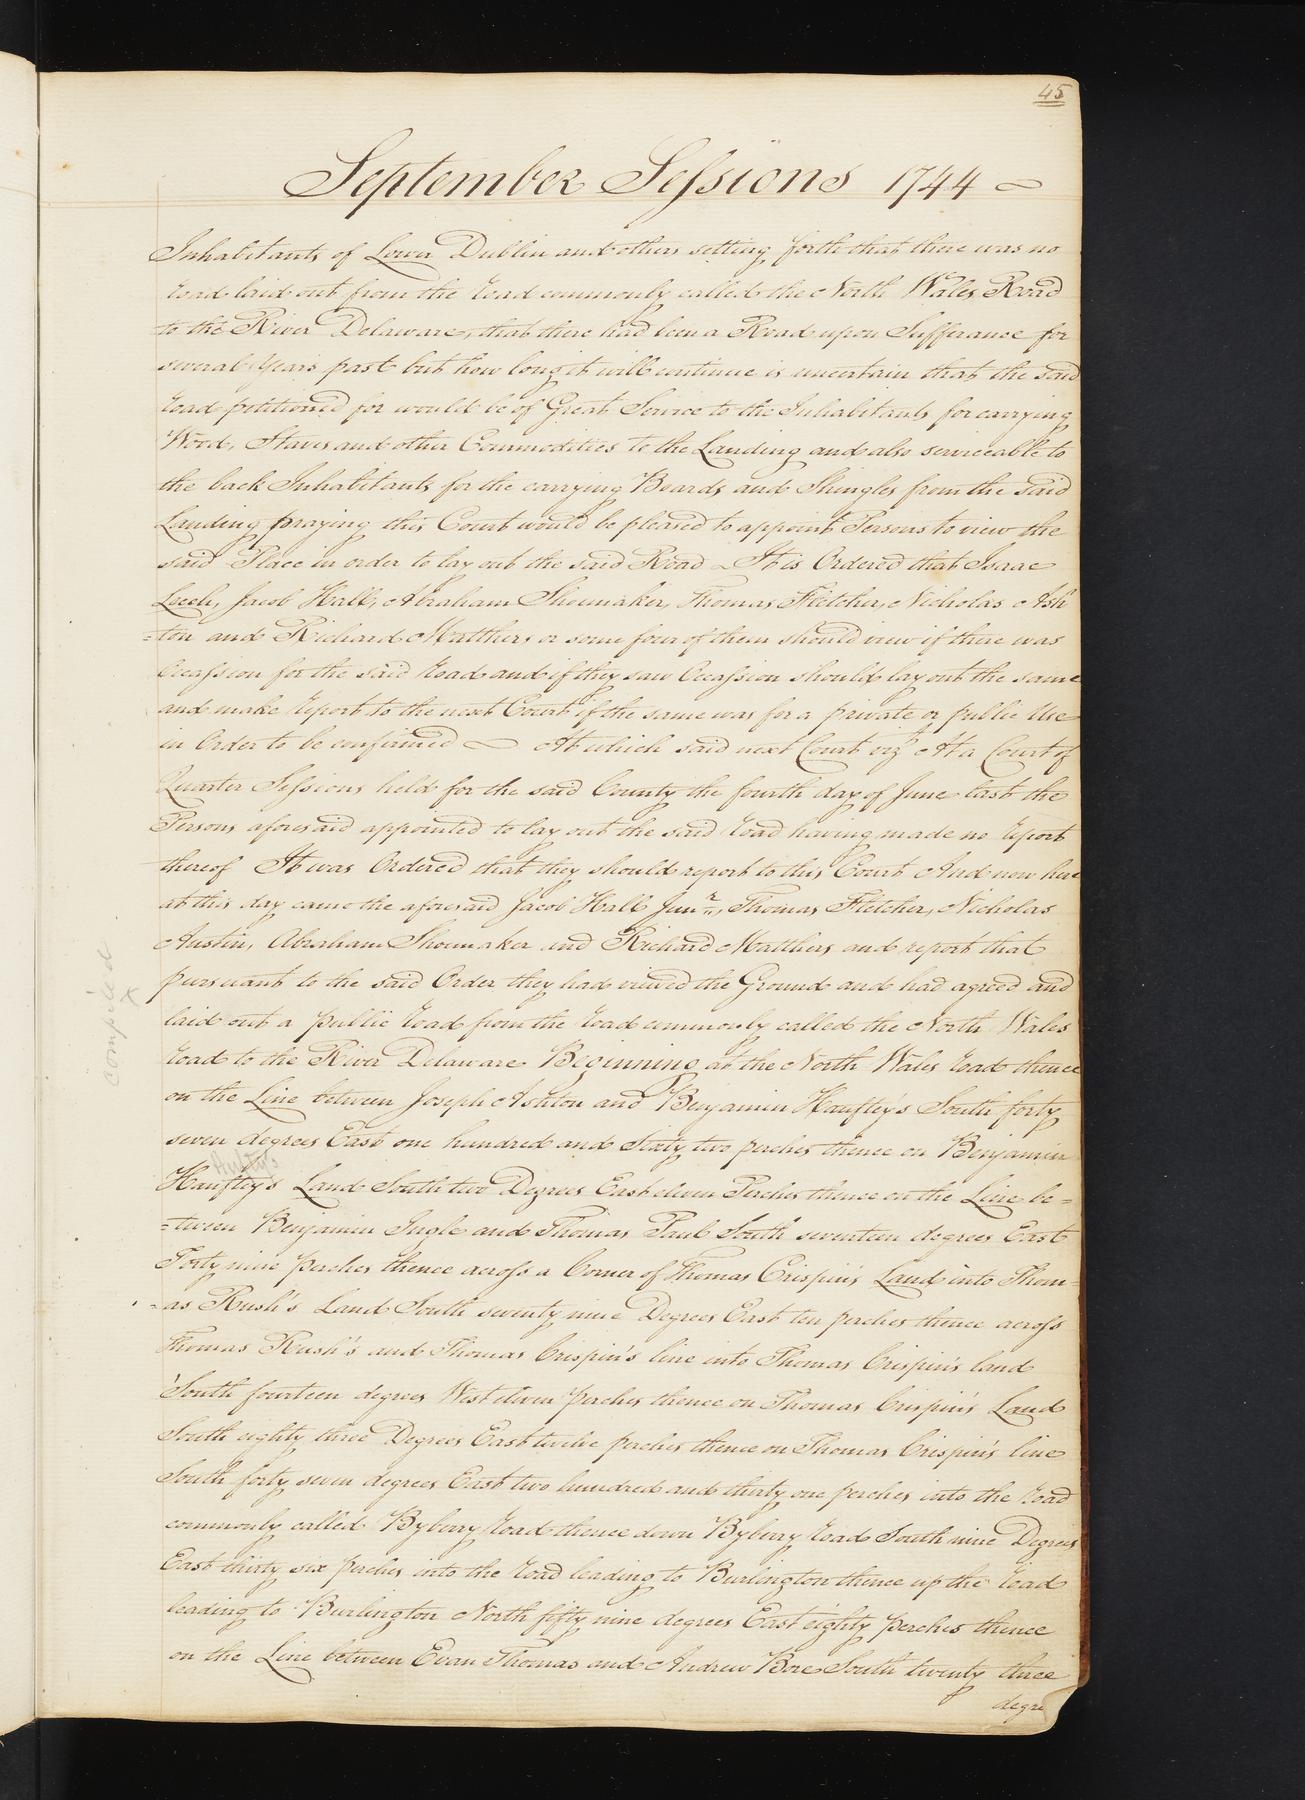 45
September Sessions 1744
Inhabitants of Lower Dublin and others setting forth that there was no
road laid out from the road commonly called the North Wales Road
to the River Delaware, that there had been a Road upon Sufferance for
several Years past but how long it will continue is uncertain that the said
road petitioned for would be of Great Service to the Inhabitants for carrying
Wood, Staves and other Commodities to the Landing and also serviceable to
the back Inhabitants for the carrying Boards and Shingles from the said
Landing praying this Court would be pleased to appoint Persons to view the
said Place in order to lay out the said Road It is Ordered that Isaac
Leech, Jacob Hall, Abraham Shoemaker, Thomas Fletcher, Nicholas Ash
=ton and Richard Matthers or some four of them should view if there was
Occassion for the said road and if they saw Occassion should lay out the same
and make report to the next Court if the same was for a private or public Use
in Order to be confirmed At which said next Court vizt At a Court of
Quarter Sessions held for the said County the fourth day of June last the
Persons aforesaid appointed to lay out the said road having made no report
thereof It was Ordered that they should report to this Court And now here
at this day came the aforesaid Jacob Hall Junr, Thomas Fletcher, Nicholas
Austin, Abraham Shoemaker and Richard Matthers and report that
pursuant to the said Order they had viewed the Ground and had agreed and
laid out a public road from the road commonly called the North Wales
road to the River Delaware Beginning at the North Wales road thence
on the Line between Joseph Ashton and Benjamin Haufty's South forty
seven degrees East one hundred and Sixty two perches thence on Benjamin
Haufty's Land South two Degrees East eleven Perches thence on the Line be=
=tween Benjamin Ingle and Thomas Paul South seventeen degrees East
Forty nine perches thence across a Corner of Thomas Crispin's Land into Thom=
=as Rush's Land South seventy nine Degrees East ten perches thence across
Thomas Rush's and Thomas Crispin's line into Thomas Crispin's land
South fourteen degrees West eleven perches thence on Thomas Crispin's Land
South eighty three Degrees East twelve perches thence on Thomas Crispin's line
South forty seven degrees East two hundred and thirty one perches into the road
commonly called Byberry road thence down Byberry road South nine Degrees
East thirty six perches into the road leading to Burlington thence up the road
leading to Burlington North fifty nine degrees East eighty perches thence
on the Line between Evan Thomas and Andrew Bore South twenty three
degre
compiled
x